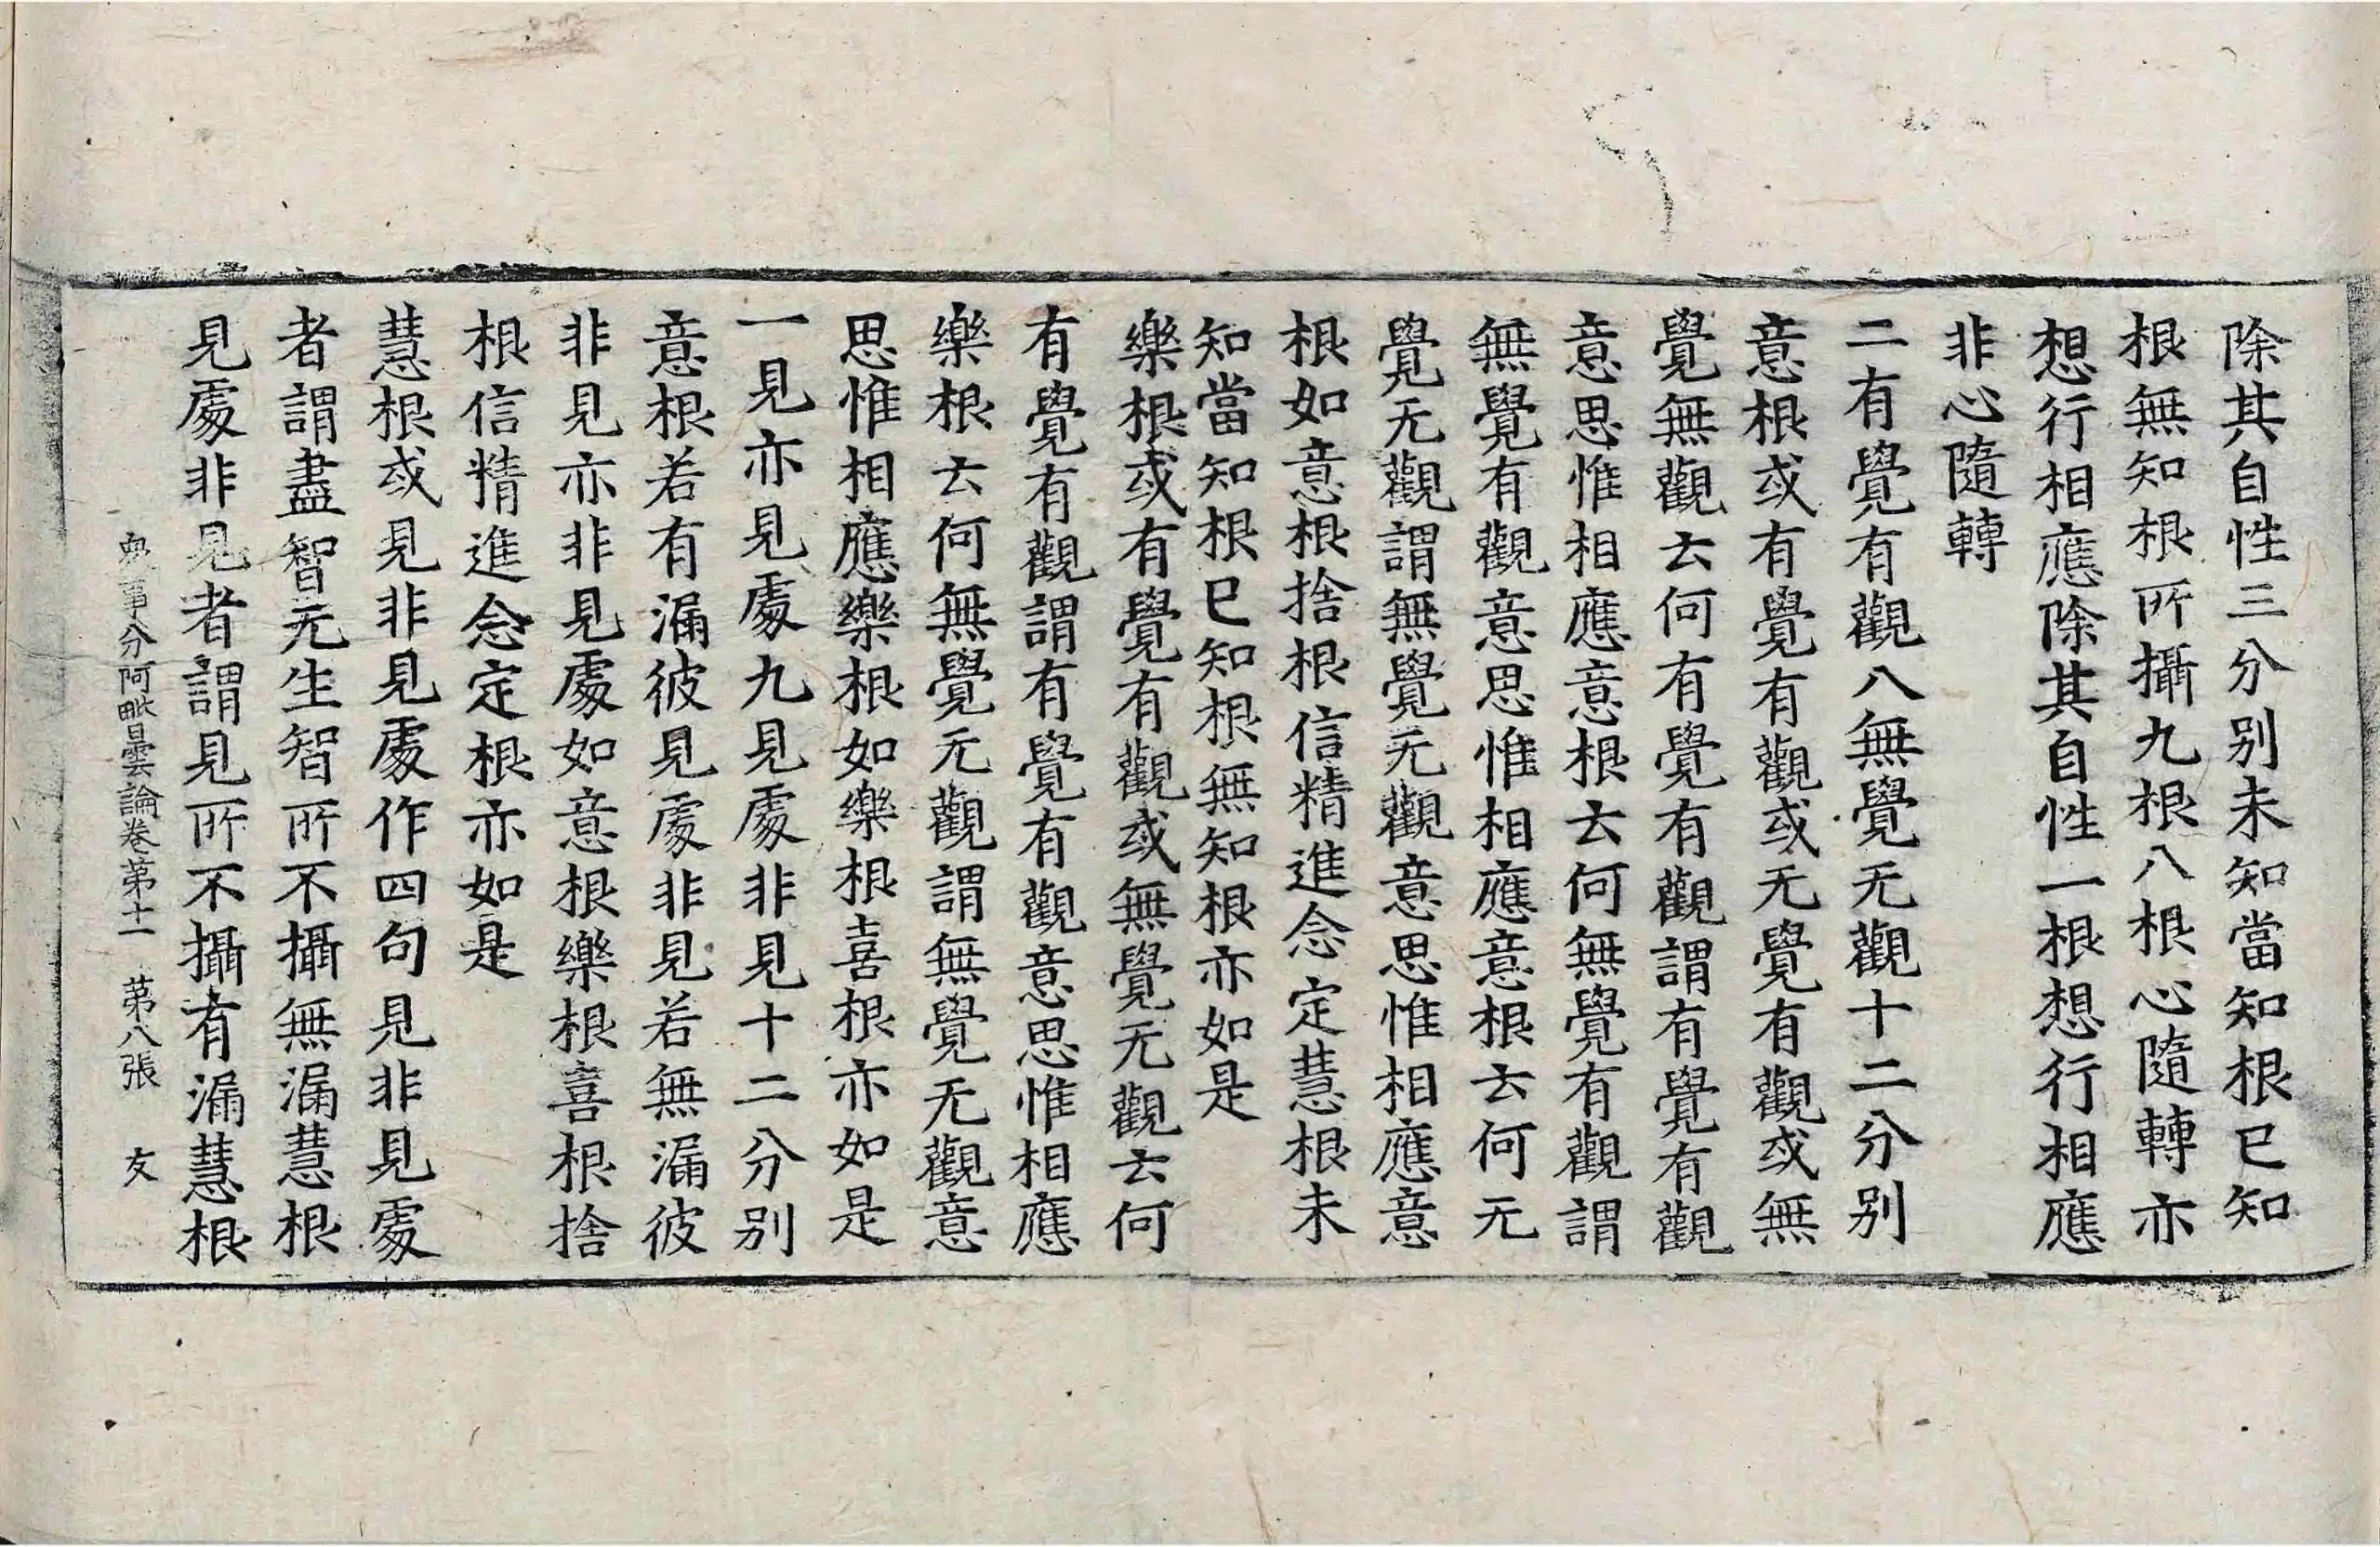 除其自性三分別未知當知根已知
根無知根所攝九根八根心隨轉亦
想行相應除其自性一根想行相應
非心隨轉
二有覺有觀八無覺无觀十二分別
意根或有覺有觀或无覺有觀或無
覺無觀云何有覺有觀謂有覺有觀
意思惟相應意根云何無覺有觀謂
無覺有觀意思惟相應意根云何无
覺无觀謂無覺无觀意思惟相應意
根如意根捨根信精進念定慧根未
知當知根已知根無知根亦如是
樂根或有覺有觀或無覺无觀云何
有覺有觀謂有覺有觀意思惟相應
樂根云何無覺无觀謂無覺无觀意
思惟相應樂根如樂根喜根亦如是
一見亦見處九見處非見十二分別
意根若有漏彼見處非見若無漏彼
非見亦非見處如意根樂根喜根捨
根信精進念定根亦如是
慧根或見非見處作四句見非見處
者謂盡智无生智所不攝無漏慧根
見處非見者謂見所不攝有漏慧根
衆事分阿毗曇論卷第十一 第八張 友